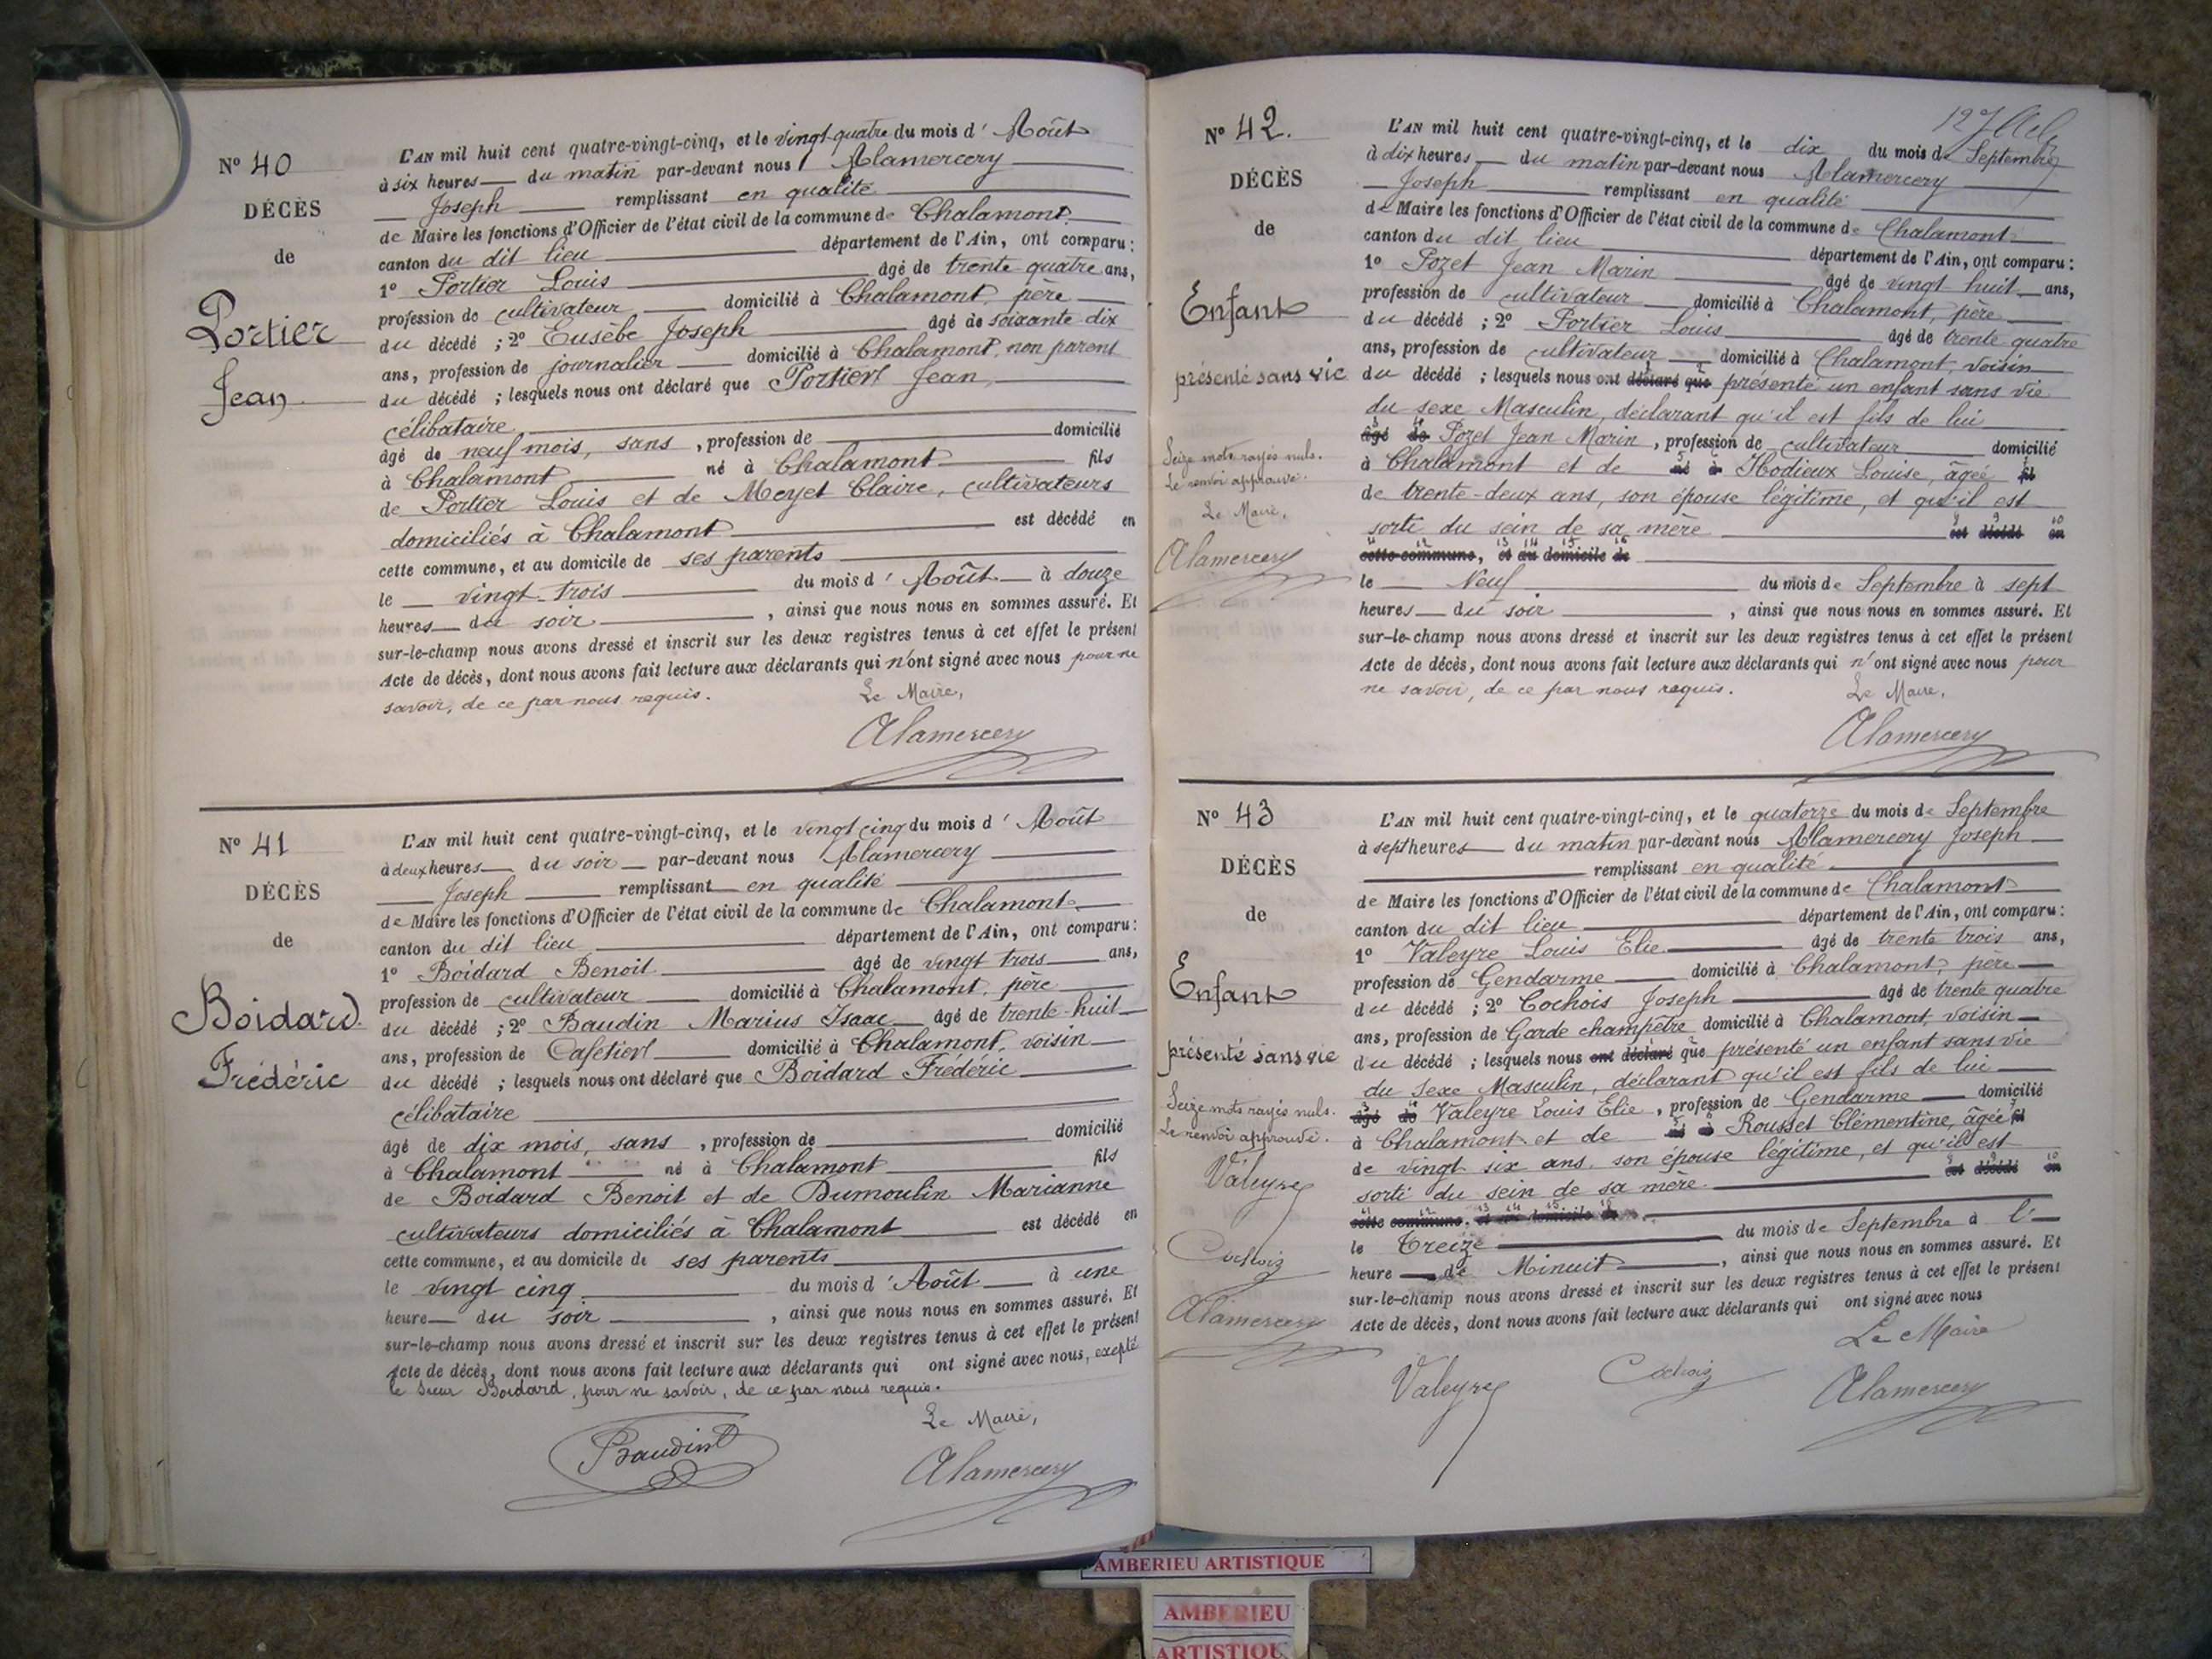 Nº 40
DÉCÈS
de
Portier
Jean
L'AN mil huit cent quatre-vingt-cinq, et le vingt-quatre du mois d' Août
à six heures du matin par-devant nous Alamercery
Joseph remplissant en qualité
de Maire les fonctions d'Officier de l'état civil de la commune de Chalamont
canton du dit lieu département de l'Ain, ont comparu :
1º Portier Louis âgé de trente quatre ans,
profession de cultivateur domicilié à Chalamont, père
du décédé ; 2º Eusèbe Joseph âgé de soixante dix
ans, profession de journalier domicilié à Chalamont, non parent
du décédé ; lesquels nous ont déclaré que Portier Jean,
célibataire
âgé de neuf mois, sans , profession de domicilié
à Chalamont né à Chalamont fils
de Portier Louis et de Meyet Claire, cultivateurs
domiciliés à Chalamont est décédé en
cette commune, et au domicile de ses parents
le vingt-trois du mois d' Août à douze
heures du soir , ainsi que nous nous en sommes assuré. Et
sur-le-champ nous avons dressé et inscrit sur les deux registres tenus à cet effet le présent
Acte de décès, dont nous avons fait lecture aux déclarants qui n'ont signé avec nous pour ne
savoir, de ce par nous requis. Le Maire,
Alamercery
Nº 41
DÉCÈS
de
Boidard
Frédéric
L'AN mil huit cent quatre-vingt-cinq, et le vingt cinq du mois d' Août
à deux heures du soir par-devant nous Alamercery
Joseph remplissant en qualité
de Maire les fonctions d'Officier de l'état civil de la commune de Chalamont
canton du dit lieu département de l'Ain, ont comparu :
1º Boidard Benoit âgé de vingt trois ans,
profession de cultivateur domicilié à Chalamont, père
du décédé ; 2º Baudin Marius Isaac âgé de trente-huit
ans, profession de Cafetier domicilié à Chalamont, voisin
du décédé ; lesquels nous ont déclaré que Boidard Frédéric
célibataire
âgé de dix mois, sans , profession de domicilié
à Chalamont né à Chalamont fils
de Boidard Benoit et de Dumoulin Marianne
cultivateurs domiciliés à Chalamont est décédé en
cette commune, et au domicile de ses parents
le vingt cinq du mois d' Août à une
heure du soir , ainsi que nous nous en sommes assuré. Et
sur-le-champ nous avons dressé et inscrit sur les deux registres tenus à cet effet le présent
Acte de décès, dont nous avons fait lecture aux déclarants qui ont signé avec nous, excepté
le sieur Boidard, pour ne savoir, de ce par nous requis.
Le Maire,
Baudin
Alamercery
Nº 42.
DÉCÈS
de
Enfant
présenté sans vie
Seize mots rayés nuls.
Le renvoi approuvé.
Le Maire,
Alamercery
L'AN mil huit cent quatre-vingt-cinq, et le dix du mois de Septembre
à dix heures du matin par-devant nous Alamercery
Joseph remplissant en qualité
de Maire les fonctions d'Officier de l'état civil de la commune de Chalamont
canton du dit lieu département de l'Ain, ont comparu :
1º Pozet Jean Marin âgé de vingt huit ans,
profession de cultivateur domicilié à Chalamont, père
du décédé ; 2º Portier Louis âgé de trente quatre
ans, profession de cultivateur domicilié à Chalamont, voisin
du décédé ; lesquels nous ont déclaré que présenté un enfant sans vie
du sexe Masculin, déclarant qu'il est fils de lui
âgé de Pozet Jean Marin , profession de cultivateur domicilié
à Chalamont et de né à Hodieux Louise, âgée fil
de trente-deux ans, son épouse légitime, et qu'il est
sorti du sein de sa mère est décédé en
cette commune, et au domicile de
le Neuf du mois de Septembre à sept
heures du soir , ainsi que nous nous en sommes assuré. Et
sur-le-champ nous avons dressé et inscrit sur les deux registres tenus à cet effet le présent
Acte de décès, dont nous avons fait lecture aux déclarants qui n'ont signé avec nous pour
ne savoir, de ce par nous requis. Le Maire,
Alamercery
Nº 43
DÉCÈS
de
Enfant
présenté sans vie
Seize mots rayés nuls.
Le renvoi approuvé.
Valeyre
Cochois
Alamercery
L'AN mil huit cent quatre-vingt-cinq, et le quatorze du mois de Septembre
à sept heures du matin par-devant nous Alamercery Joseph
remplissant en qualité
de Maire les fonctions d'Officier de l'état civil de la commune de Chalamont
canton du dit lieu département de l'Ain, ont comparu :
1º Valeyre Louis Elie âgé de trente trois ans,
profession de Gendarme domicilié à Chalamont, père
du décédé ; 2º Cochois Joseph âgé de trente quatre
ans, profession de Garde champêtre domicilié à Chalamont, voisin
du décédé ; lesquels nous ont déclaré que présenté un enfant sans vie
du sexe Masculin, déclarant qu'il est fils de lui
âgé de Valeyre Louis Elie , profession de Gendarme domicilié
à Chalamont et de né à Rousset Clémentine, âgée fil
de vingt six ans, son épouse légitime, et qu'il est
sorti du sein de sa mère est décédé en
cette commune, et au domicile de
le Treize du mois de Septembre à l'
heure de Minuit , ainsi que nous nous en sommes assuré. Et
sur-le-champ nous avons dressé et inscrit sur les deux registres tenus à cet effet le présent
Acte de décès, dont nous avons fait lecture aux déclarants qui ont signé avec nous
Le Maire
Valeyre Cochois Alamercery
AMBERIEU ARTISTIQUE
AMBERIEU
ARTISTIQU